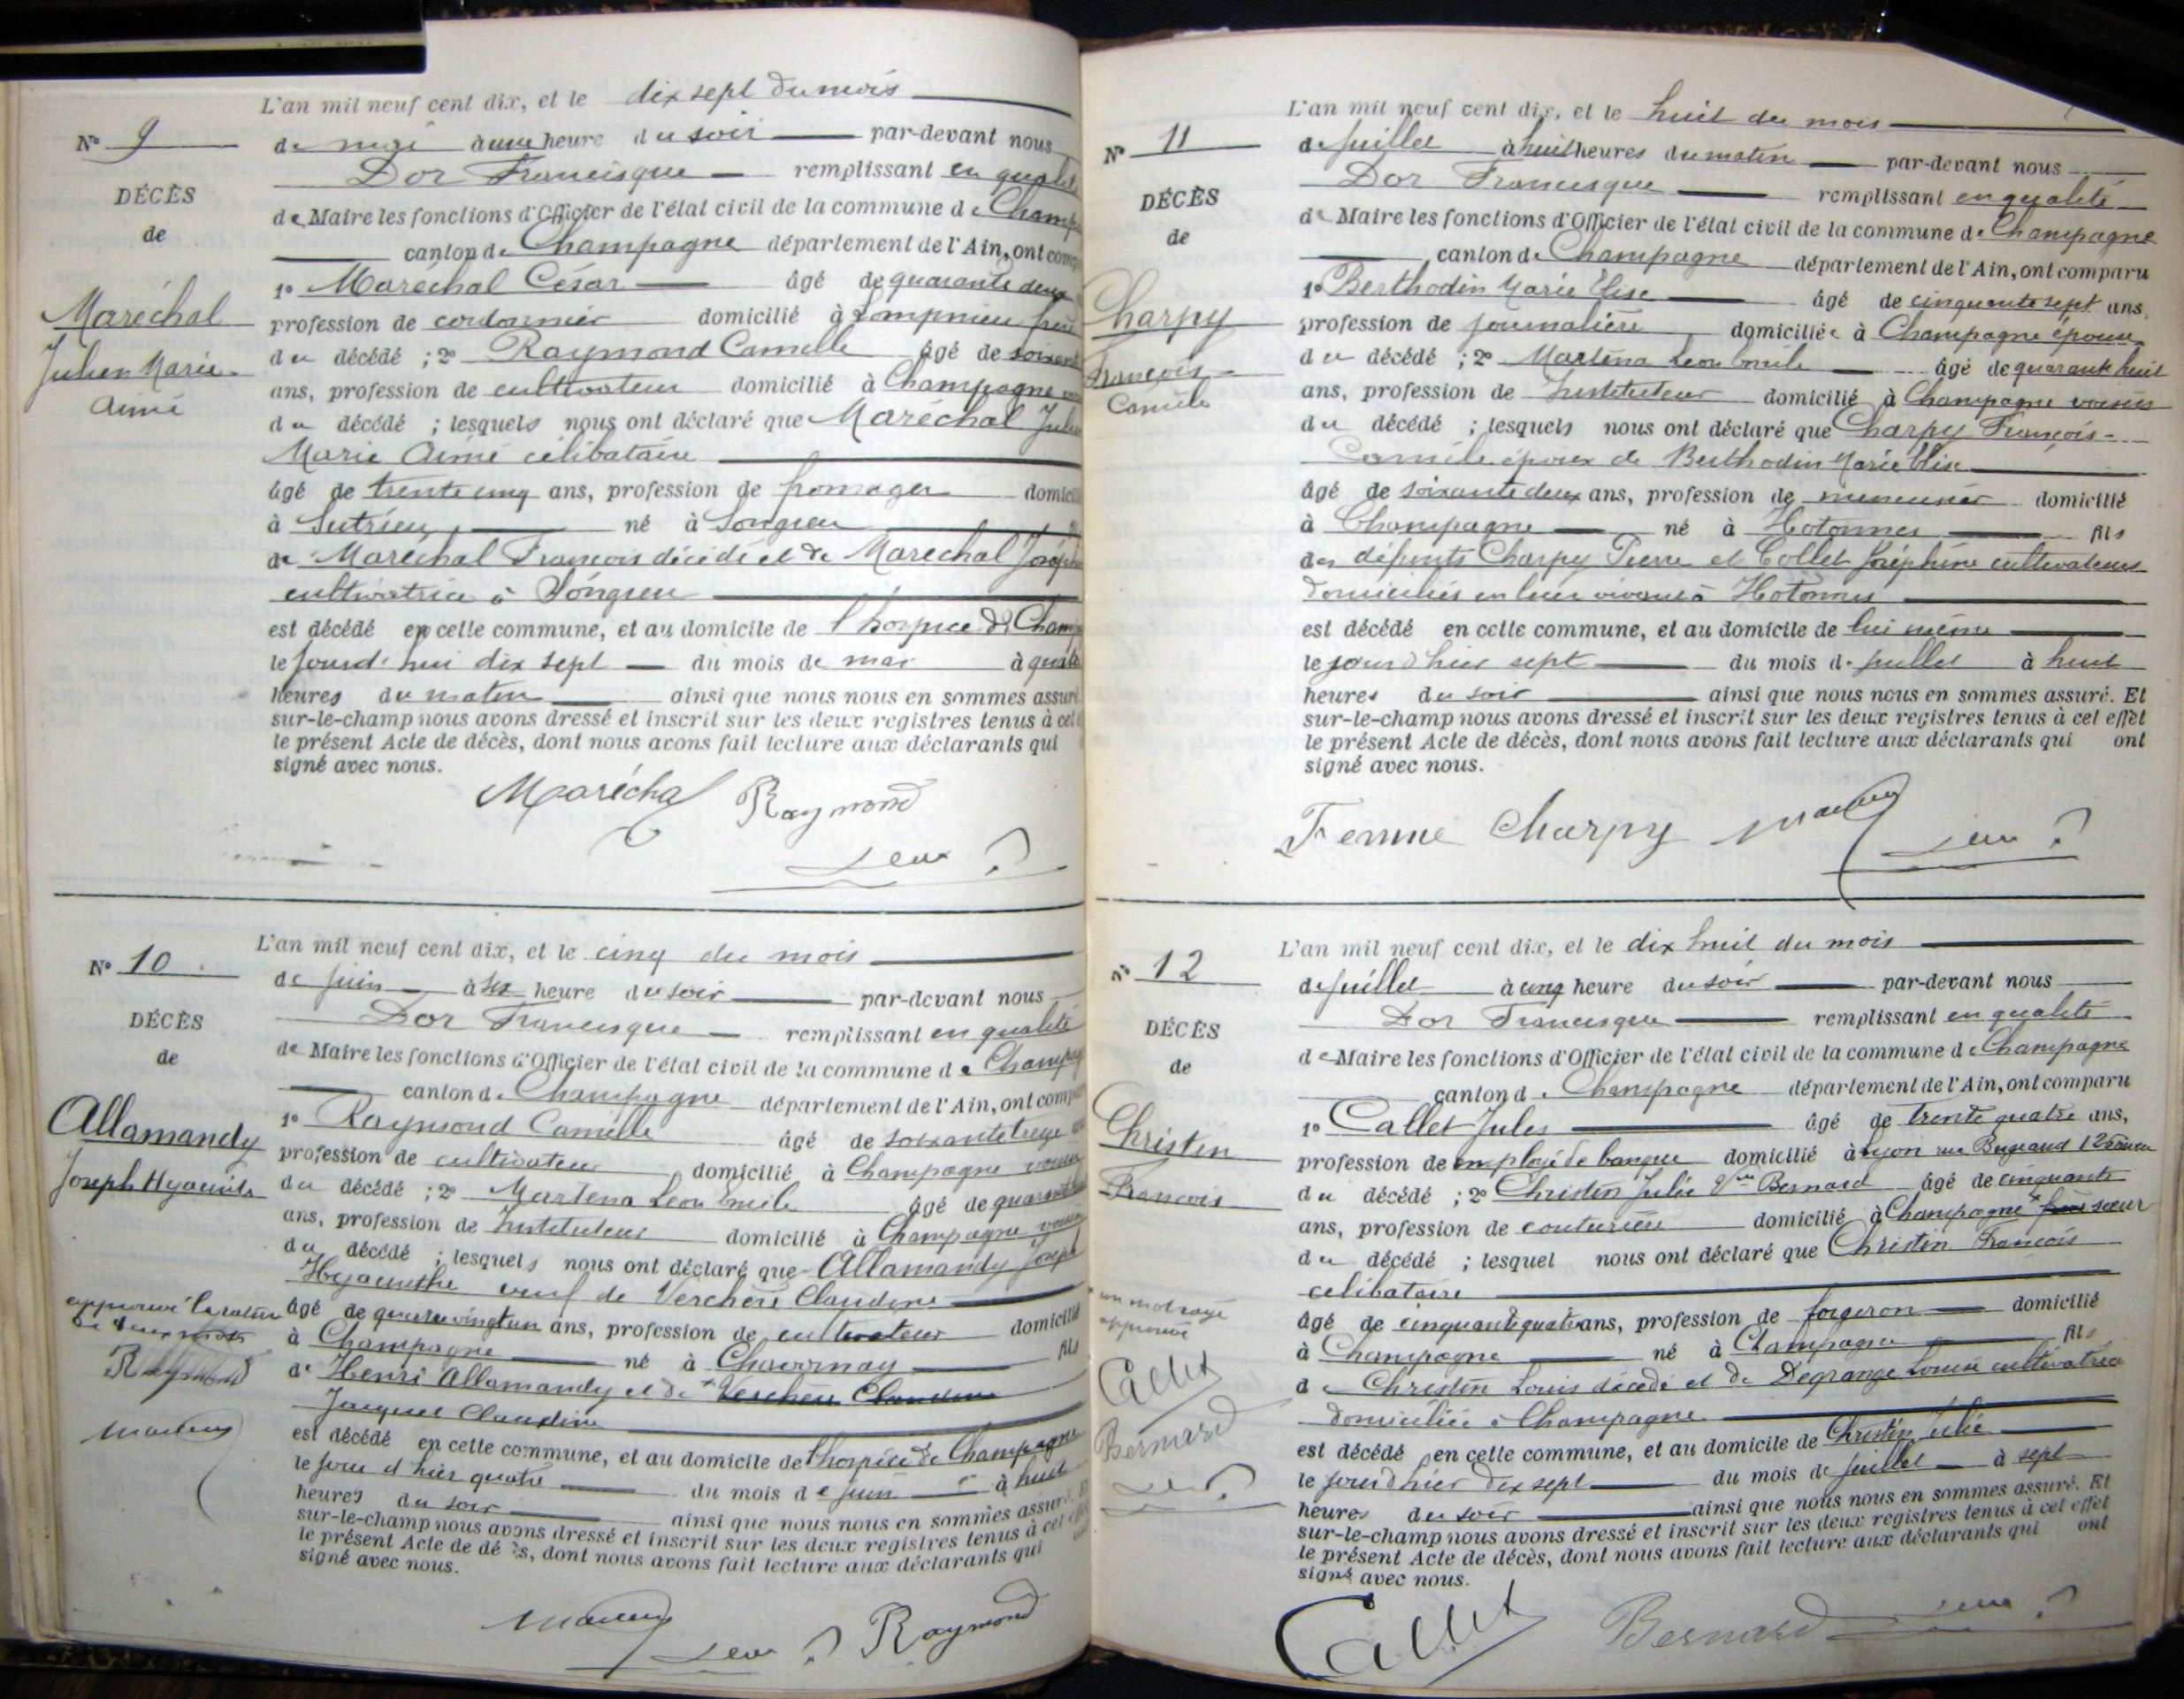 L'an mil neuf cent dix, et le dix sept du mois
N° 9
de mai à une heure du soir par-devant nous
Dor Francisque remplissant en qualité
DÉCÈS
de Maire les fonctions d'Officier de l'état civil de la commune de Champ
de
canton de Champagne département de l'Ain, ont comp
1° Maréchal César âgé de quarante deux
Maréchal
profession de cordonnier domicilié à Lompnieu frère
Julien Marie
du décédé ; 2° Raymond Camille âgé de soixante
Aimé
ans, profession de cultivateur domicilié à Champagne
du décédé ; lesquels nous ont déclaré que Maréchal Julien
Marie Aimé célibataire
âgé de trente cinq ans, profession de fromager domicilié
à Sutrieu né à Songieu
de Maréchal François décédé et de Maréchal Joséphine
cultivatrice à Songieu
est décédé en cette commune, et au domicile de l'hospice de Champ
le jourd'hui dix sept du mois de mai à quatre
heures du matin ainsi que nous nous en sommes assuré.
sur-le-champ nous avons dressé et inscrit sur les deux registres tenus à cet
le présent Acte de décès, dont nous avons fait lecture aux déclarants qui
signé avec nous.
Maréchal Raymond
L'an mil neuf cent dix, et le cinq du mois
N° 10
de juin à six heure du soir par-devant nous
Dor Francisque remplissant en qualité
DÉCÈS
de Maire les fonctions d'Officier de l'état civil de la commune de Champag
de
canton de Champagne département de l'Ain, ont comp
1° Raymond Camille âgé de soixante treize
Allamandy
profession de cultivateur domicilié à Champagne voisin
Joseph Hyacinthe
du décédé ; 2° Martena Léon Emile âgé de quarante
ans, profession de Instituteur domicilié à Champagne voisin
du décédé ; lesquels nous ont déclaré que Allamandy Joseph
Hyacinthe veuf de Verchère Claudine
approuvé la rature
de deux mots
âgé de quatre vingt un ans, profession de cultivateur domicilié
à Champagne né à Chavornay fils
Raymond
de Henri Allamandy et de + Verchere Claudine
Jacquet Claudine
est décédé en cette commune, et au domicile de l'hospice de Champagne
le jour d'hier quatre du mois de juin à huit
heures du soir ainsi que nous nous en sommes assuré. E
sur-le-champ nous avons dressé et inscrit sur les deux registres tenus à cet effet
le présent Acte de dé ès, dont nous avons fait lecture aux déclarants qui
signé avec nous.
Raymond
L'an mil neuf cent dix, et le huit du mois
N° 11
de Juillet à huit heures du matin par-devant nous
Dor Francisque remplissant en qualité
DÉCÈS
de Maire les fonctions d'Officier de l'état civil de la commune de Champagne
de
canton de Champagne département de l'Ain, ont comparu
1° Berthodin Marie Elise âgé de cinquante sept ans,
Charpy
profession de journalière domiciliée à Champagne épouse
du décédé ; 2° Martena Léon Emile âgé de quarante huit
François
Camile
ans, profession de Instituteur domicilié à Champagne voisin
du décédé ; lesquels nous ont déclaré que Charpy François-
Camile époux de Berthodin Marie Elise
âgé de soixante deux ans, profession de menuisier domicilié
à Champagne né à Hotonnes fils
des défunts Charpy Pierre et Collet Joséphine cultivateurs
domiciliés en leur vivant à Hotonnes
est décédé en cette commune, et au domicile de lui même
le jour d'hier sept du mois de juillet à huit
heures du soir ainsi que nous nous en sommes assuré. Et
sur-le-champ nous avons dressé et inscrit sur les deux registres tenus à cet effet
le présent Acte de décès, dont nous avons fait lecture aux déclarants qui ont
signé avec nous.
Femme Charpy
L'an mil neuf cent dix, et le dix huit du mois
N° 12
de juillet à cinq heure du soir par-devant nous
Dor Francisque remplissant en qualité
DÉCÈS
de Maire les fonctions d'Officier de l'état civil de la commune de Champagne
de
canton de Champagne département de l'Ain, ont comparu
1° Callet Jules âgé de trente quatre ans,
Christin
profession de employé de banque domicilié à Lyon rue Bugeaud 125
François
du décédé ; 2° Christin Julie Vve Bernard âgé de cinquante
ans, profession de couturière domicilié à Champagne soeur
du décédé ; lesquel nous ont déclaré que Christin François
célibataire
un mot rayé
approuvé
âgé de cinquante quatre ans, profession de forgeron domicilié
à Champagne né à Champagne fils
Callet
de Christin Louis décédé et de Degrange Louise cultivatrice
domiciliée à Champagne
Bernard
est décédé en cette commune, et au domicile de Christin Julie
le jour d'hier dix sept du mois de juillet à sept
heures du soir ainsi que nous nous en sommes assuré. Et
sur-le-champ nous avons dressé et inscrit sur les deux registres tenus à cet effet
le présent Acte de décès, dont nous avons fait lecture aux déclarants qui ont
signé avec nous.
Callet Bernard